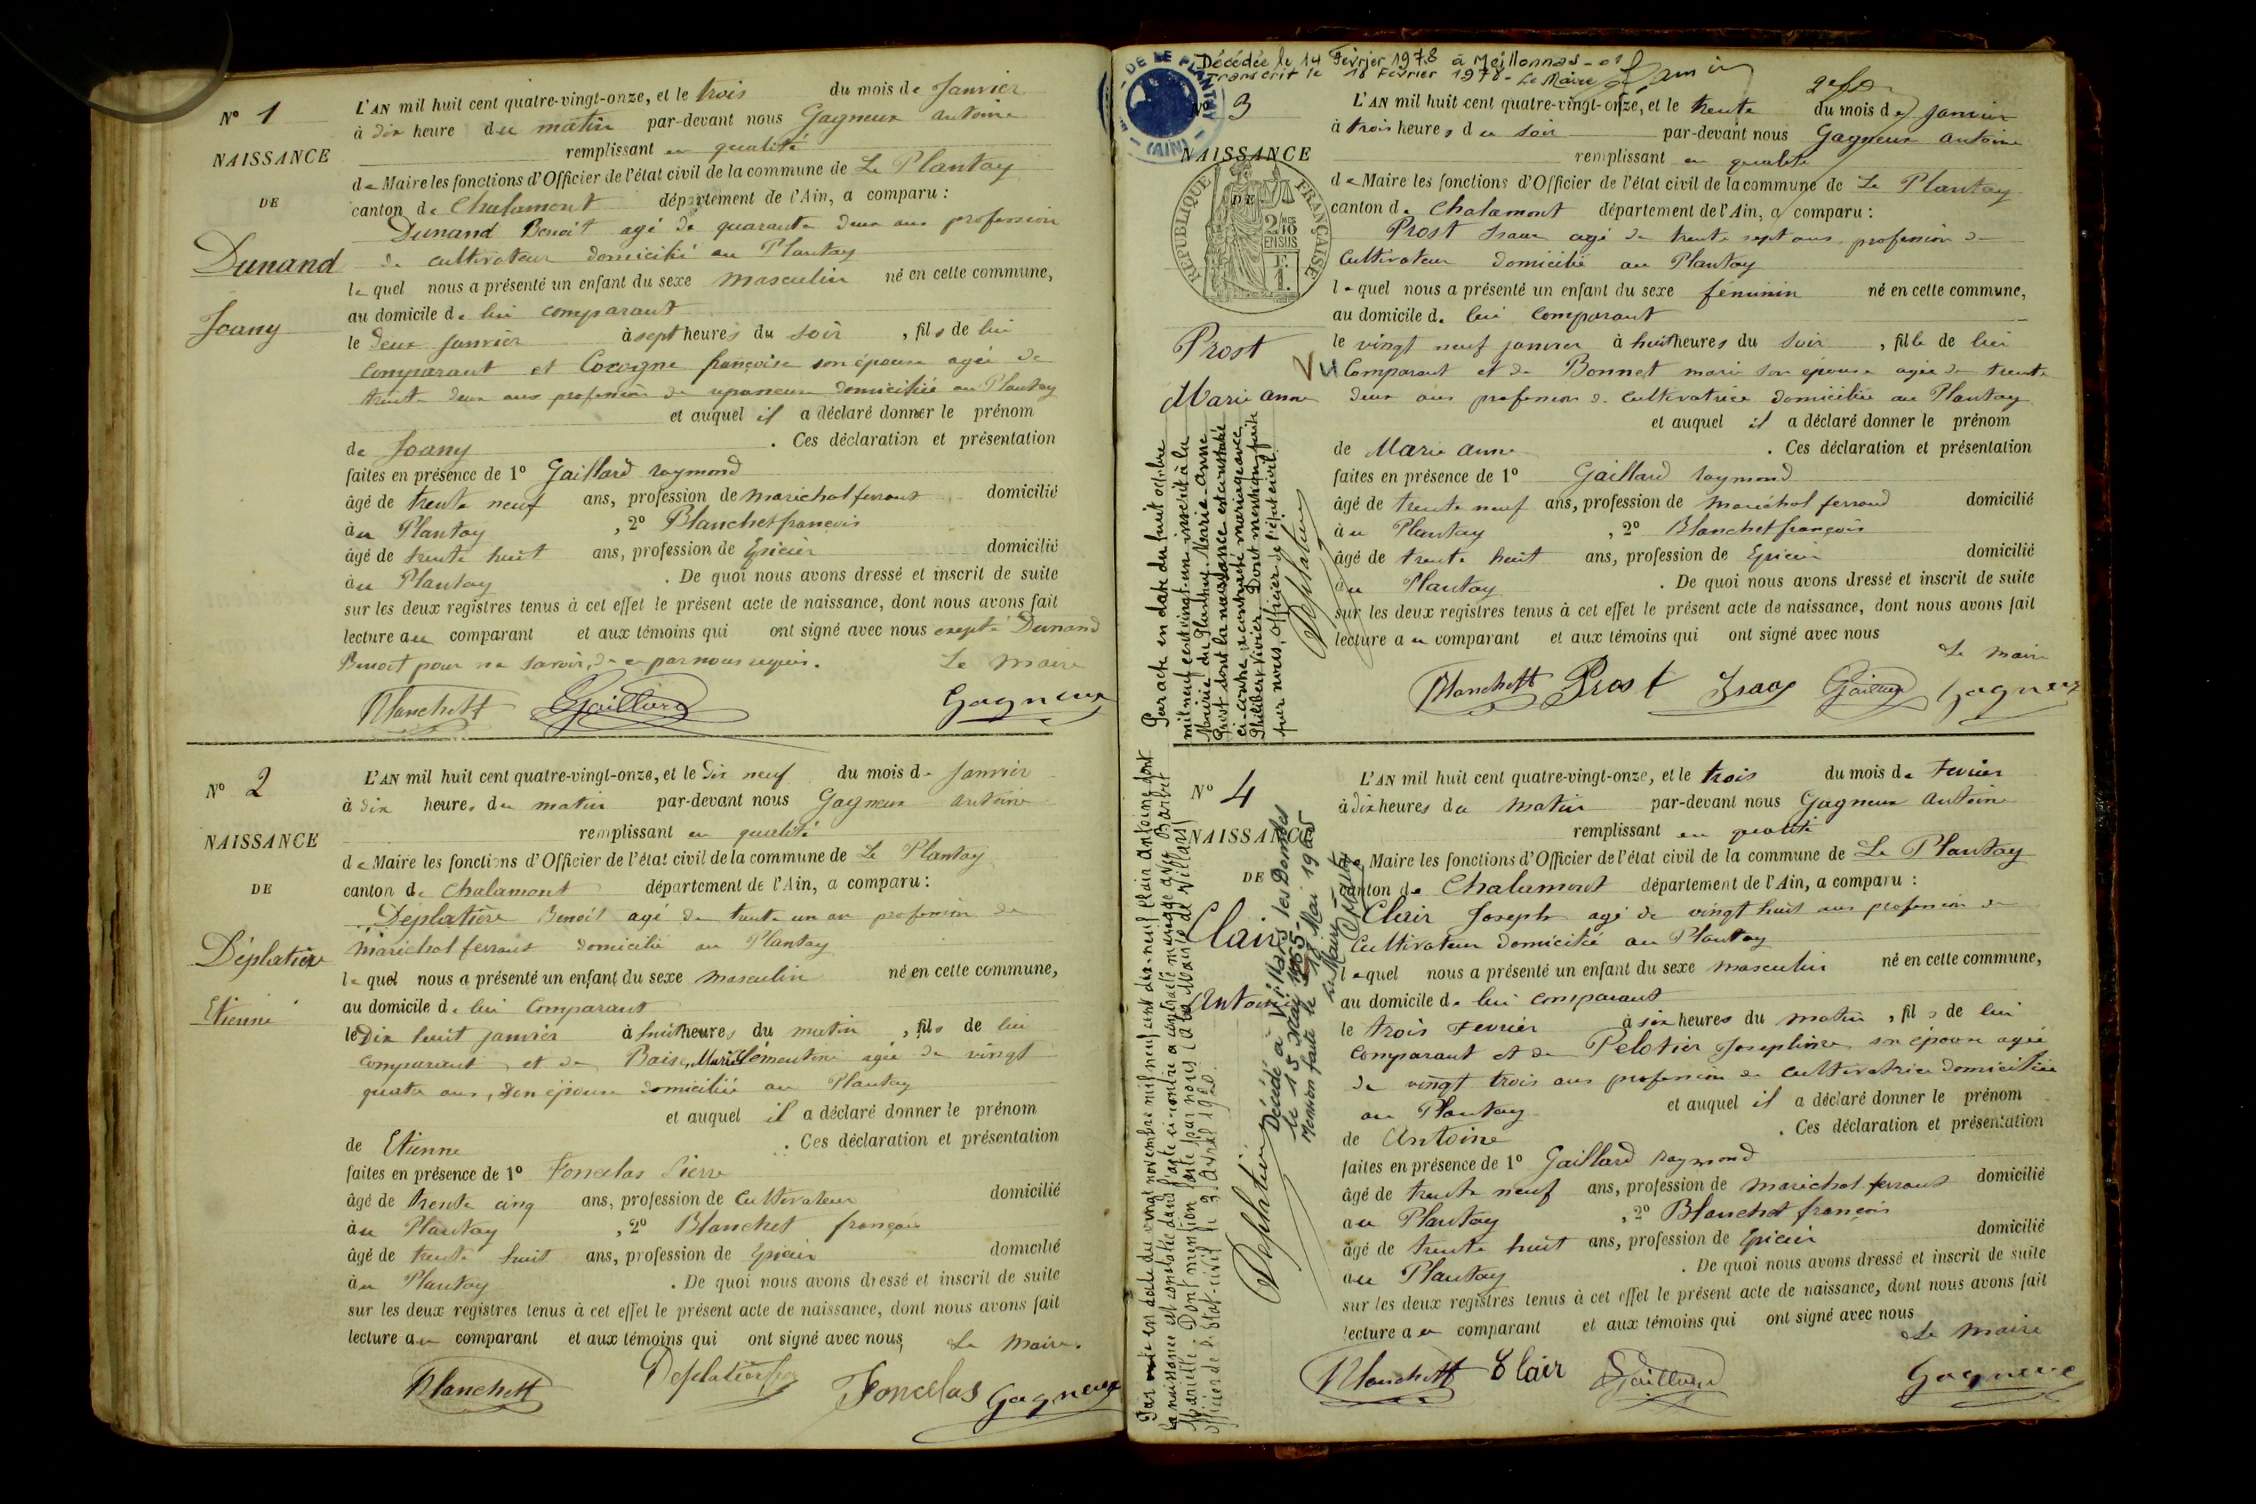 N° 1
NAISSANCE
DE
Dunand
Joany
L'AN mil huit cent quatre-vingt-onze, et le trois du mois de Janvier
à dix heure du matin par-devant nous Gagneux antoine
remplissant en qualité
de Maire les fonctions d'Officier de l'état civil de la commune de Le Plantay
canton de Chalamont département de l'Ain, a comparu :
Dunand Benoit agé de quarante deux ans profession
de cultivateur domicilié au Plantay
le quel nous a présenté un enfant du sexe masculin né en cette commune,
au domicile de lui comparant
le deux Janvier à sept heures du soir , fils de lui
comparant et Cocogne françoise son épouse agée de
trente deux ans profession de domiciliée au Plantay
et auquel il a déclaré donner le prénom
de Joany . Ces déclaration et présentation
faites en présence de 1° Gaillard raymond
âgé de trente neuf ans, profession de marichal ferrant domicilié
à au Plantay , 2° Blanchet francois
âgé de trente huit ans, profession de Epicier domicilié
à au Plantay . De quoi nous avons dressé et inscrit de suite
sur les deux registres tenus à cet effet le présent acte de naissance, dont nous avons fait
lecture au comparant et aux témoins qui ont signé avec nous excepté Dunand
Benoit pour ne savoir, de ce par nous requis. Le Maire
Blanchett Gaillard Gagneux
N° 2
NAISSANCE
DE
Déplatière
Etienne
L'AN mil huit cent quatre-vingt-onze, et le dix neuf du mois de Janvier
à dix heures du matin par-devant nous Gagneux antoine
remplissant en qualité
de Maire les fonctions d'Officier de l'état civil de la commune de Le Plantay
canton de Chalamont département de l'Ain, a comparu :
Déplatière Benoit agé de trente un an profession de
marichal ferrant domicilié au Plantay
le quel nous a présenté un enfant du sexe masculin né en cette commune,
au domicile de lui comparant
le Dix huit janvier à huit heures du matin , fils de lui
comparant et de Marie Clémentine agée de vingt
quatre ans, son épouse domiciliée au Plantay
et auquel il a déclaré donner le prénom
de Etienne . Ces déclaration et présentation
faites en présence de 1° Foncelas Pierre
âgé de trente cinq ans, profession de Cultivateur domicilié
à au Plantay , 2° Blanchet françois
âgé de trente huit ans, profession de Epicier domicilié
à au Plantay . De quoi nous avons dressé et inscrit de suite
sur les deux registres tenus à cet effet le présent acte de naissance, dont nous avons fait
lecture au comparant et aux témoins qui ont signé avec nous, Le Maire.
Blanchett Deplatière Foncelas Gagneux
DE LE PLANTAY
(AIN)
Décédée le 14 Février 1978 à Meillonnas
Transcrit le 18 Février 1978 - Le Maire
N° 3
NAISSANCE
DE
REPUBLIQUE FRANÇAISE
2/10 EN SUS
F. 1.
Prost
Marie anne
VU
L'AN mil huit cent quatre-vingt-onze, et le trente du mois de Janvier
à trois heures du soir par-devant nous Gagneux antoine
remplissant en qualité
de Maire les fonctions d'Officier de l'état civil de la commune de Le Plantay
canton de Chalamont département de l'Ain, a comparu :
Prost Isaac agé de trente sept ans profession de
cultivateur domicilié au Plantay
le quel nous a présenté un enfant du sexe féminin né en cette commune,
au domicile de lui comparant
le vingt neuf janvier à huit heures du soir , fille de lui
Comparant et de Bonnet marie son épouse agée de trente
deux ans profession de cultivatrice domiciliée au Plantay
et auquel il a déclaré donner le prénom
de Marie anne . Ces déclaration et présentation
faites en présence de 1° Gaillard raymond
âgé de trente neuf ans, profession de maréchal ferrand domicilié
à au Plantay , 2° Blanchet françois
âgé de trente huit ans, profession de Epicier domicilié
à au Plantay . De quoi nous avons dressé et inscrit de suite
sur les deux registres tenus à cet effet le présent acte de naissance, dont nous avons fait
lecture au comparant et aux témoins qui ont signé avec nous
Le Maire
Blanchett Prost Isaac Gaillard Gagneux
Par acte en date du huit octobre
mil neuf cent vingt-un inscrit à la
Mairie du Planthay, Marie-Anne
Prost dont la naissance est constatée
ci-contre, a contracté mariage avec
Philibert Vivier. Dont mention faite
par nous, officier de l'état civil.
Desplatière
N° 4
NAISSANCE
DE
Clair
Antoine
L'AN mil huit cent quatre-vingt-onze, et le trois du mois de Fevrier
à dix heures du matin par-devant nous Gagneux antoine
remplissant en qualité
de Maire les fonctions d'Officier de l'état civil de la commune de Le Plantay
canton de Chalamont département de l'Ain, a comparu :
Clair Joseph agé de vingt huit ans profession de
Cultivateur domicilié au Plantay
le quel nous a présenté un enfant du sexe masculin né en cette commune,
au domicile de lui comparant
le trois Fevrier à six heures du matin , fils de lui
comparant et de Pelotier Josephine son épouse agée
de vingt trois ans profession de cultivatrice domiciliée
au Plantay et auquel il a déclaré donner le prénom
de Antoine . Ces déclaration et présentation
faites en présence de 1° Gaillard raymond
âgé de trente neuf ans, profession de marichal ferrant domicilié
au Plantay , 2° Blanchet françois
âgé de trente huit ans, profession de Epicier domicilié
au Plantay . De quoi nous avons dressé et inscrit de suite
sur les deux registres tenus à cet effet le présent acte de naissance, dont nous avons fait
lecture au comparant et aux témoins qui ont signé avec nous
Le Maire
Blanchett Clair Gaillard Gagneux
Par acte en date du vingt novembre mil neuf cent dix-neuf Clair Antoine dont
la naissance est constatée dans l'acte ci-contre a contracté mariage avec Barbet
Marcelle. Dont mention faite par nous (à la Mairie de Villars)
officier de l'état-civil le 3 Avril 1920.
Desplatière
Décédé à Villars les Dombes
le 15 Mai 1965
Mention faite le 18 Mai 1965
Le Maire